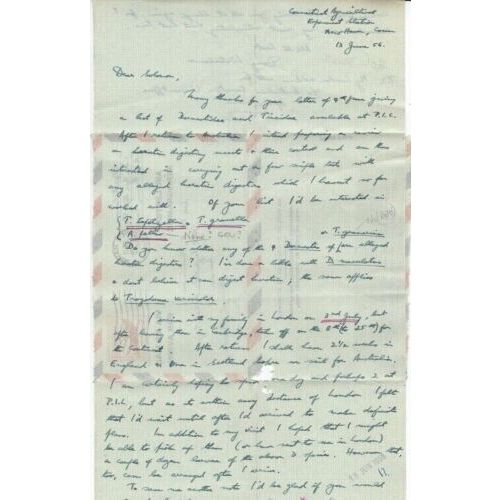 Connecticut Agricultural
Experiment Station
New Haven, Conn
13 June 56.
Dear
Many thanks for your letter of 8th June giving
a list of Dermestidae and Tineidae available at P.I.L.
After I return to Australia I intend preparing a review
on keratin digesting insects & their control and am thus
interested in carrying out a few simple tests with
any alleged keratin digesters which I haven't so far
worked with. Of your list I'd be interested in
T. tapetzella, T. granella
A.
None?
or T. granarium
Do you know whether any of the 9 Dermestes of fame alleged
keratin digesters? I've done a little with D. maculatus
& don't believe it can digest keratin; the same applies
to Trogoderma versicolor.
I arrive with my family in London on 2nd July, but
after leaving them in Cambridge, take off on the 8th (to 25th) for
the Continent. After return I shall have 2½ weeks in
England & one in Scotland before we sail for Australia.
I am certainly hoping to spend one day and perhaps 2 at
P.I.L, but as its within easy distance of London I felt
that I'd wait until after I'd arrived to make definite
plans. In addition to my visit I hoped that I might
be able to pick up them (or have sent to me in London)
a couple of dozen larvae of the above 3 species. However that,
too, can be arranged after I arrive.
To save me another note I'd be glad if you would